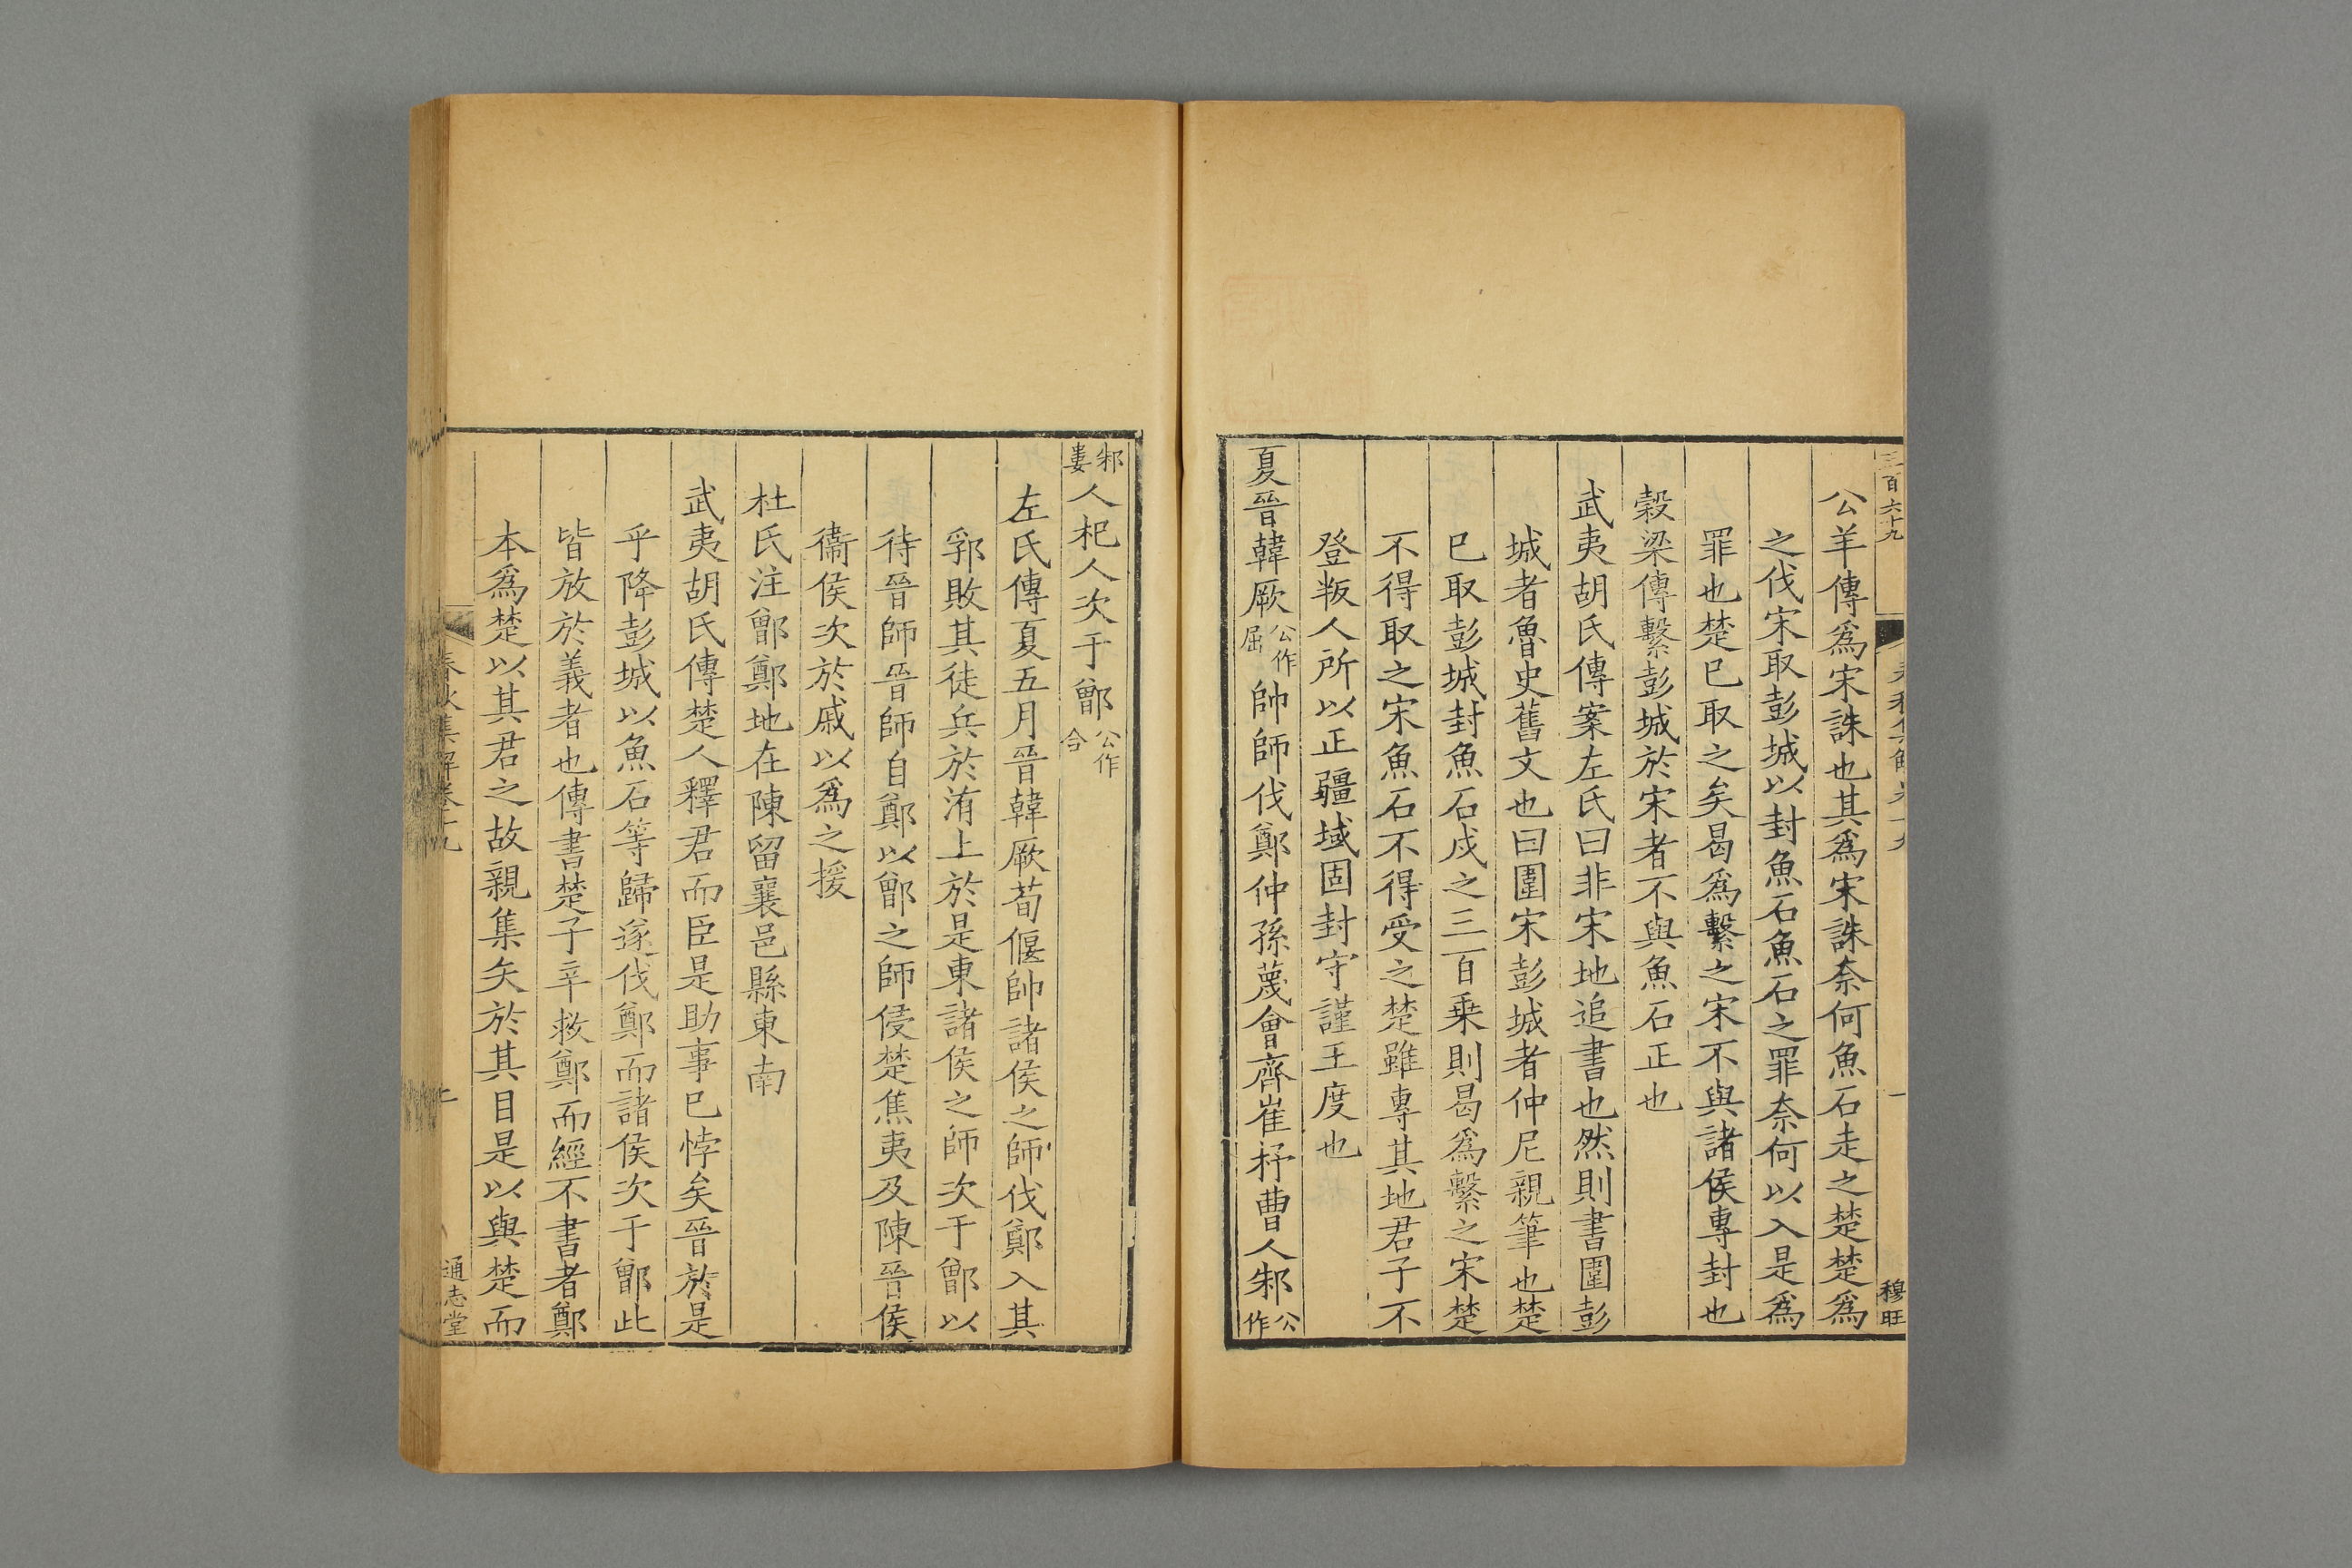 三百六十九
春秋集解卷十九
一
穆旺
公羊傳爲宋誅也其爲宋誅奈何魚石走之楚楚爲
之伐宋取彭城以封魚石魚石之罪奈何以入是爲
罪也楚已取之矣曷爲繫之宋不與諸侯專封也
榖梁傳繫彭城於宋者不與魚石正也
武夷胡氏傳案左氏曰非宋地追書也然則書圍彭
城者魯史舊文也曰圍宋彭城者仲尼親筆也楚
已取彭城封魚石戍之三百乗則曷爲繫之宋楚
不得取之宋魚石不得受之楚雖專其地君子不
登叛人所以正疆域固封守謹王度也
夏晉韓厥公作屈帥師伐鄭仲孫蔑會齊崔杼曹人邾公作
邾婁人杞人次于鄫公作合
左氏傳夏五月晉韓厥荀偃帥諸侯之師伐鄭入其
郛敗其徒兵於洧上於是東諸侯之師次于鄫以
待晉師晉師自鄭以鄫之師侵楚焦夷及陳晉侯
衞侯次於戚以爲之援
杜氏注鄫鄭地在陳留襄邑縣東南
武夷胡氏傳楚人釋君而臣是助事已悖矣晉於是
乎降彭城以魚石等歸遂伐鄭而諸侯次于鄫此
皆放於義者也傳書楚子辛救鄭而經不書者鄭
本爲楚以其君之故親集矢於其目是以與楚而
春秋集解卷十九
通志堂